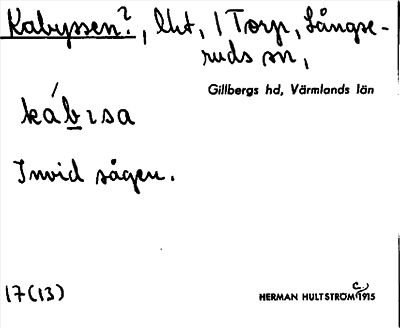 Kabyssen?, lht, 1 Torp, Långse-
ruds sn,
Gillbergs hd, Värmlands län
kábɩsa
Invid sågen.
17(13)
HERMAN HULTSTRÖM c. 1915